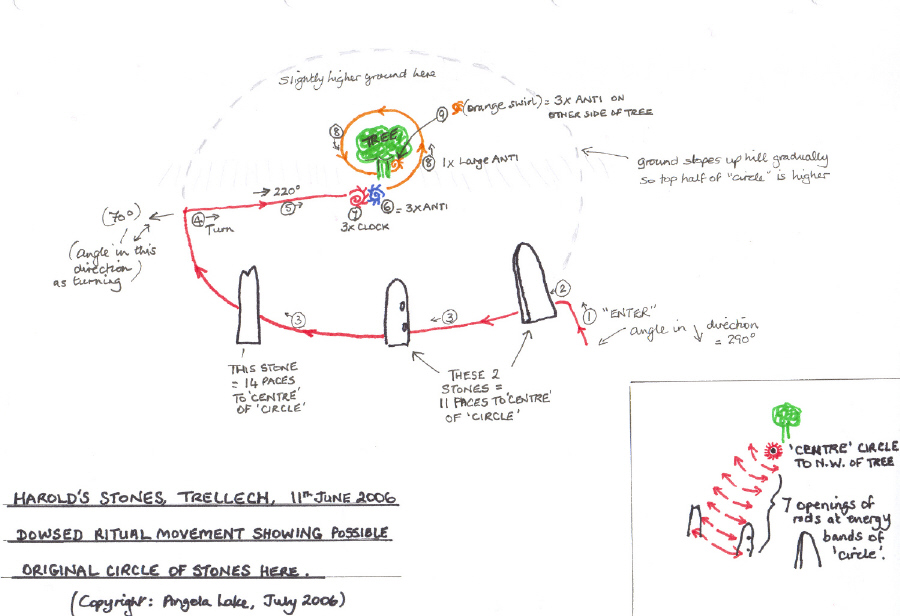 slightly higher ground here
⑨ (orange swirl) = 3x ANTI ON
OTHER SIDE OF TREE
TREE
⑧
⑧
1x Large ANTI
ground slopes up hill gradually
so top half of "circle" is higher
→ 220°
⑤→
⑦
3x CLOCK
⑥ = 3x ANTI
(70°)
④→
Turn
(angle in this
direction)
as turning
②
① "ENTER"
angle in direction
= 290°
③
③
THIS STONE
= 14 PACES
TO 'CENTRE'
OF 'CIRCLE'
THESE 2
STONES =
11 PACES TO 'CENTRE'
OF 'CIRCLE'
'CENTRE' CIRCLE
TO N.W. OF TREE
7 openings of
rods at energy
bands of
'circle'.
HAROLD'S STONES, TRELLECH, 11TH JUNE 2006
DOWSED RITUAL MOVEMENT SHOWING POSSIBLE
ORIGINAL CIRCLE OF STONES HERE.
(Copyright: Angela Lake, July 2006)